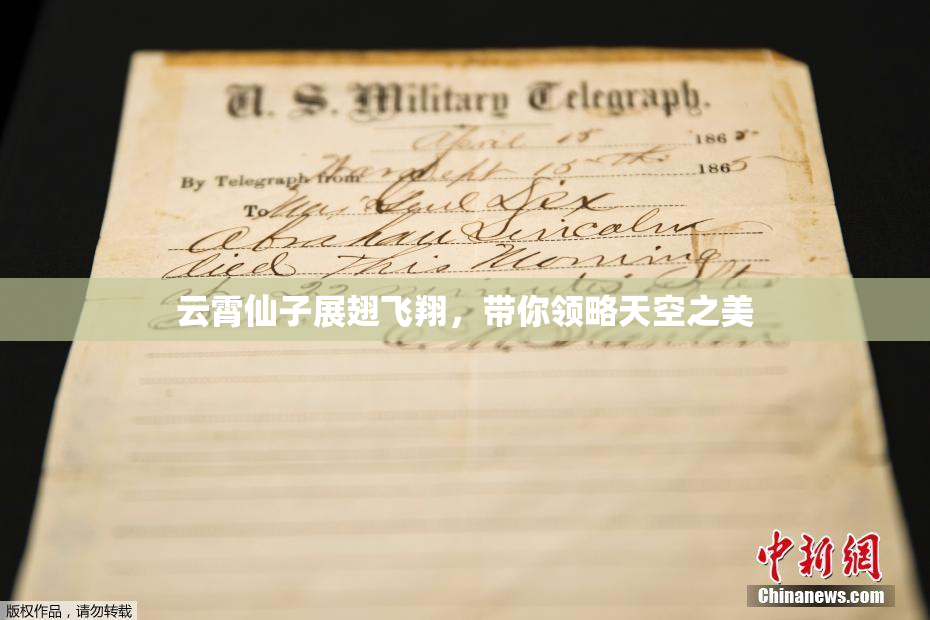 U. S. Military Telegraph.
April 15 1865
By Telegraph from War Dept 15th 1865
To Maj Genl Dix
Abraham Lincoln
died This Morning
at 22 minutes after
云霄仙子展翅飞翔，带你领略天空之美
E. M. Stanton
中新网
Chinanews.com
版权作品，请勿转载